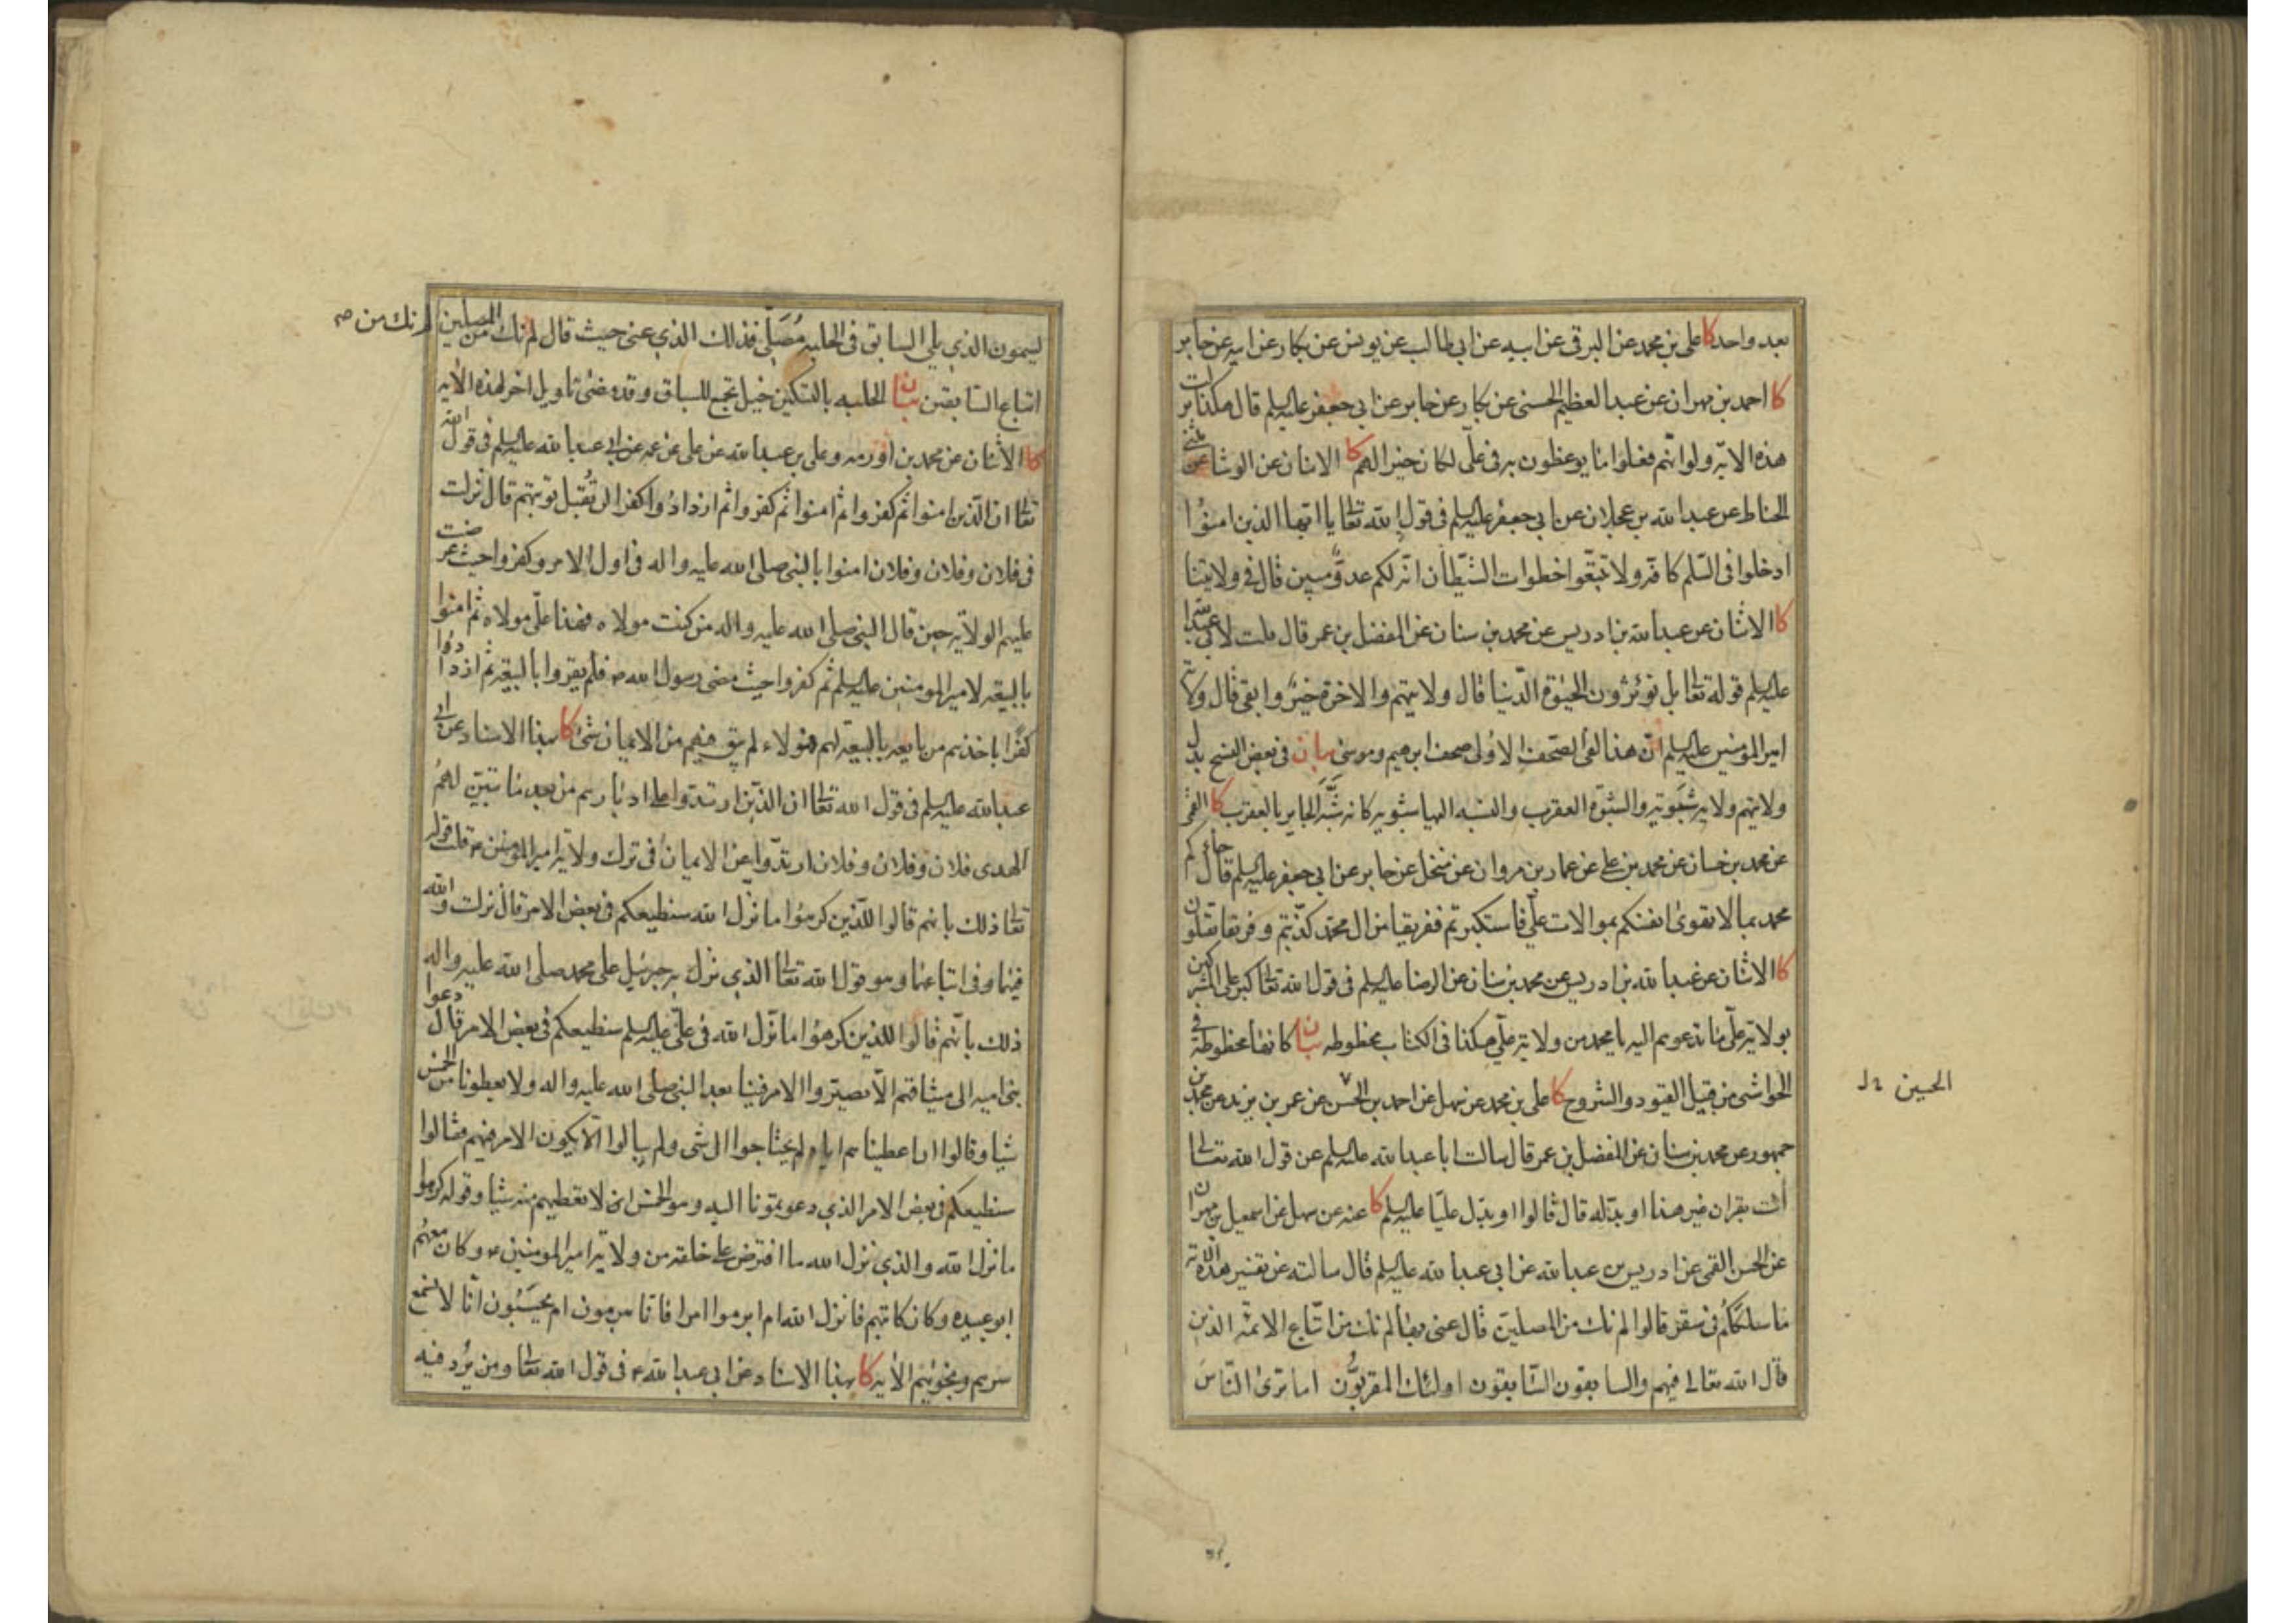 بعد واحد كا على بن محمد عن البرقى عن ابيه عن ابى طالب عن يونس عن بكار عن ابيه عن جابر
كا احمد بن مهران عن عبد العظيم الحسنى عن بكار عن جابر عن ابى جعفر عليه السلم قال هكذا نزلت
هذه الاية ولو انهم فعلوا ما يوعظون به فى على لكان خيرا لهم كا الاثنان عن الوشا عن مثنى
الحناط عن عبد الله بن عجلان عن ابى جعفر عليه السلم فى قول الله تعالى يا ايها الذين امنوا
ادخلوا فى السلم كافة ولا تتبعوا خطوات الشيطان انه لكم عدو مبين قال فى ولايتنا
كا الاثنان عن عبد الله بن ادريس عن محمد بن سنان عن المفضل بن عمر قال قلت لابى عبد الله
عليه السلم قوله تعالى بل تؤثرون الحيوة الدنيا قال ولايتهم والاخرة خير وابقى قال ولاية
امير المؤمنين عليه السلم ان هذا لفى الصحف الاولى صحف ابرهيم وموسى بيان فى بعض النسخ بدل
ولايتهم ولاية شبوية والشبوة العقرب والنسبة اليها شبوية كانه شبه الجاير بالعقرب كا القمى
عن محمد بن حسان عن محمد بن على عن عمار بن مروان عن منخل عن جابر عن ابى جعفر عليه السلم قال جاءكم
محمد بما لا تهوى انفسكم بموالات على فاستكبرتم ففريقا من ال محمد كذبتم وفريقا تقتلون
كا الاثنان عن عبد الله بن ادريس عن محمد بن سنان عن الرضا عليه السلم فى قول الله تعالى كبر على المشركين
بولاية على ما تدعوهم اليه يا محمد من ولاية على هكذا فى الكتاب مخطوطه بيان كانها مخطوطة فى
الحواشى من قبيل القيود والشروح كا على بن محمد عن سهل عن احمد بن الحسن عن عمر بن يزيد عن محمد بن
جمهور عن محمد بن سنان عن المفضل بن عمر قال سالت ابا عبد الله عليه السلم عن قول الله تعالى
ائت بقران غير هذا او بدله قال قالوا او بدل عليا عليه السلم كا عنه عن سهل عن اسمعيل بن مهران
عن الحسن القمى عن ادريس بن عبد الله عن ابى عبد الله عليه السلم قال سالته عن تفسير هذه الاية
ما سلككم فى سقر قالوا لم نك من المصلين قال عنى بها لم نك من اتباع الائمة الذين
قال الله تعالى فيهم والسابقون السابقون اولئك المقربون اما ترى الناس
الحسين
يسمون الذي يلى السابق فى الحلبة مصلى فذلك الذي عنى حيث قال لم نك من المصلين
لم نك من
اتباع السابقين بيان الحلبه بالتسكين خيل تجمع للسباق وقد مضى تاويل اخر لهذه الاية
كا الاثنان عن محمد بن اورمه وعلى بن عبد الله عن على عن عمه عن ابى عبد الله عليه السلم فى قول الله
تعالى ان الذين امنوا ثم كفروا ثم امنوا ثم كفروا ثم ازدادوا كفرا لن تقبل توبتهم قال نزلت
فى فلان وفلان وفلان امنوا بالنبى صلى الله عليه واله فى اول الامر وكفروا حيث عرضت
عليهم الولاية حين قال النبى صلى الله عليه واله من كنت مولاه فهذا على مولاه ثم امنوا
بالبيعة لامير المومنين عليه السلم ثم كفروا حيث مضى رسول الله ص فلم يقروا بالبيعة ثم ازدادوا
كفرا باخذهم من بايعه بالبيعة لهم فهؤلاء لم يبق فيهم من الايمان شئ كا بهذا الاسناد عن ابى
عبد الله عليه السلم فى قول الله تعالى ان الذين ارتدوا على ادبارهم من بعد ما تبين لهم
الهدى فلان وفلان وفلان ارتدوا عن الايمان فى ترك ولاية امير المؤمنين ع قلت قوله
تعالى ذلك بانهم قالوا للذين كرهوا ما نزل الله سنطيعكم فى بعض الامر قال نزلت والله
فيهما وفى اتباعهما وهو قول الله تعالى الذي نزل به جبرئيل على محمد صلى الله عليه واله
ذلك بانهم قالوا للذين كرهوا ما نزل الله فى على عليه السلم سنطيعكم فى بعض الامر قال دعوا
بنى اميه الى ميثاقهم الا يصيروا الامر فينا بعد النبى صلى الله عليه واله ولا يعطونا من الخمس
شيا وقالوا ان اعطيناهم اياه لم يحتاجوا الى شى ولم يبالوا الا يكون الامر فيهم فقالوا
سنطيعكم فى بعض الامر الذي دعوتمونا اليه وهو الخمس ان لا نعطيهم منه شيا وقوله كرهوا
ما نزل الله والذي نزل الله ما افترض على خلقه من ولاية امير المومنين ع وكان معهم
ابو عبيده وكان كاتبهم فانزل الله ام ابرموا امرا فانا مبرمون ام يحسبون انا لا نسمع
سرهم ونجويهم الاية كا بهذا الاسناد عن ابى عبد الله ع فى قول الله تعالى ومن يرد فيه